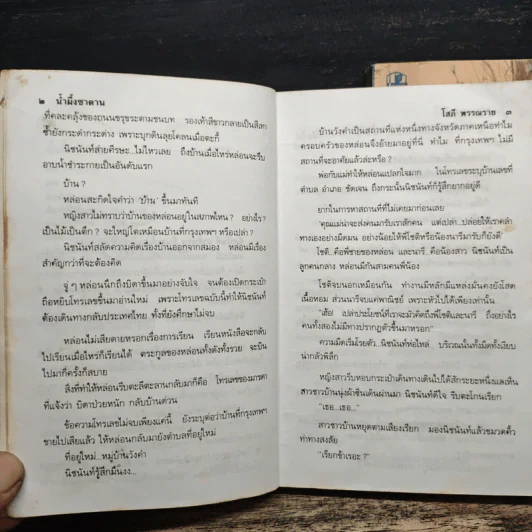 ๒ น้ำผึ้งซาตาน
ที่คละคลุ้งของถนนขรุขระตามชนบท รองเท้าสีขาวกลายเป็นสีเทา
ซ้ำยังกระดำกระด่าง เพราะบุกดินลุยโคลนเมื่อตะกี้
นิชนันท์ส่ายศีรษะ..ไม่ไหวเลย ถึงบ้านเมื่อไหร่หล่อนจะรีบ
อาบน้ำชำระกายเป็นอันดับแรก
บ้าน ?
หล่อนสะกิดใจคำว่า 'บ้าน' ขึ้นมาทันที
หญิงสาวไม่ทราบว่าบ้านของหล่อนอยู่ในสภาพไหน ? อย่างไร ?
เป็นไม้เป็นตึก ? จะใหญ่โตเหมือนบ้านที่กรุงเทพฯ หรือเปล่า ?
นิชนันท์สลัดความคิดเรื่องบ้านออกจากสมอง หล่อนมีเรื่อง
สำคัญกว่าที่จะต้องคิด
จู่ ๆ หล่อนนึกถึงบิดาขึ้นมาอย่างจับใจ จนต้องเปิดกระเป๋า
ถือหยิบโทรเลขขึ้นมาอ่านใหม่ เพราะโทรเลขฉบับนี้ทำให้นิชนันท์
ต้องเดินทางกลับประเทศไทย ทั้งที่ยังศึกษาไม่จบ
หล่อนไม่เสียดายหรอกเรื่องการเรียน เรียนหนังสือจะกลับ
ไปเรียนเมื่อไหร่ก็เรียนได้ ตระกูลของหล่อนทั้งดังทั้งรวย จะบิน
ไปมากี่ครั้งก็สบาย
สิ่งที่ทำให้หล่อนรีบตะลีตะลานกลับมาก็คือ โทรเลขของมารดา
ที่แจ้งว่า บิดาป่วยหนัก กลับบ้านด่วน
ข้อความโทรเลขไม่จบเพียงแค่นี้ ยังระบุต่อว่าบ้านที่กรุงเทพฯ
ขายไปเสียแล้ว ให้หล่อนกลับมายังตำบลที่อยู่ใหม่
ที่อยู่ใหม่...หมู่บ้านวังคำ
นิชนันท์รู้สึกมึนงง...
โสภี พรรณราย ๓
บ้านวังคำเป็นสถานที่แห่งหนึ่งทางจังหวัดภาคเหนือทำไม
ครอบครัวของหล่อนจึงย้ายมาอยู่ที่นี่ ทำไม ที่กรุงเทพฯ ไม่มี
สถานที่จะอาศัยแล้วล่ะหรือ ?
พ่อกับแม่ทำให้หล่อนแปลกใจมาก ในโทรเลขระบุบ้านเลขที่
ตำบล อำเภอ ชัดเจน ถึงกระนั้นนิชนันท์ก็รู้สึกยากอยู่ดี
ยากในการหาสถานที่ที่ไม่เคยมาก่อนเลย
"คุณแม่น่าจะส่งคนมารับเราสักคน แต่เปล่า..ปล่อยให้เราคลำ
ทางเองอย่างมืดมน อย่างน้อยให้พี่โชติหรือน้องนารีมารับก็ยังดี"
โชติ..คือพี่ชายของหล่อน และนารี..คือน้องสาว นิชนันท์เป็น
ลูกคนกลาง หล่อนมีกันสามคนพี่น้อง
โชติจบนอกเหมือนกัน ทำงานมีหลักมีแหล่งมั่นคงยังโสด
เนื้อหอม ส่วนนารีจบแค่พาณิชย์ เพราะหัวไปได้เพียงเท่านั้น
"เฮ้อ! เปล่าประโยชน์ที่เราจะมัวคิดถึงพี่โชติและนารี ถึงอย่างไร
คนทั้งสองไม่มีทางปรากฏตัวขึ้นมาหรอก"
ความมืดเริ่มโรยตัว..นิชนันท์ห่อไหล่ บริเวณนั้นทั้งมืดทั้งเงียบ
น่ากลัวพิลึก
หญิงสาวรีบหอบกระเป๋าเดินทางเดินไปได้สักระยะหนึ่งแลเห็น
สาวชาวบ้านนุ่งผ้าซิ่นเดินผ่านมา นิชนันท์ดีใจ รีบตะโกนเรียก
"เธอ...เธอ..."
สาวชาวบ้านหยุดตามเสียงเรียก มองนิชนันท์แล้วขมวดคิ้ว
ทำท่าทางสงสัย
"เรียกข้าเรอะ ?"